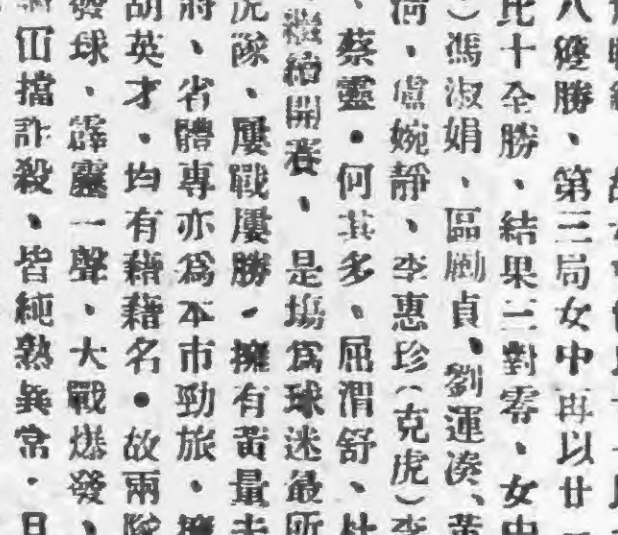 八獲勝、第三局女中再以廿一
比十全勝、結果三對零、女中
）馮淑娟、區劌貞、劉運湊、黃
盧婉靜、李惠珍（克虎）李
、蔡靈·何其多、屈渭舒、杜
繼續開賽、是場為球迷最所
虎隊、屢戰屢勝、擁有黃量夫
將、省體專亦為本市勁旅、擁
胡英才、均有藉藉名·故兩隊
發球、霹靂一聲、大戰爆發、
擋詐殺、皆純熟異常·且